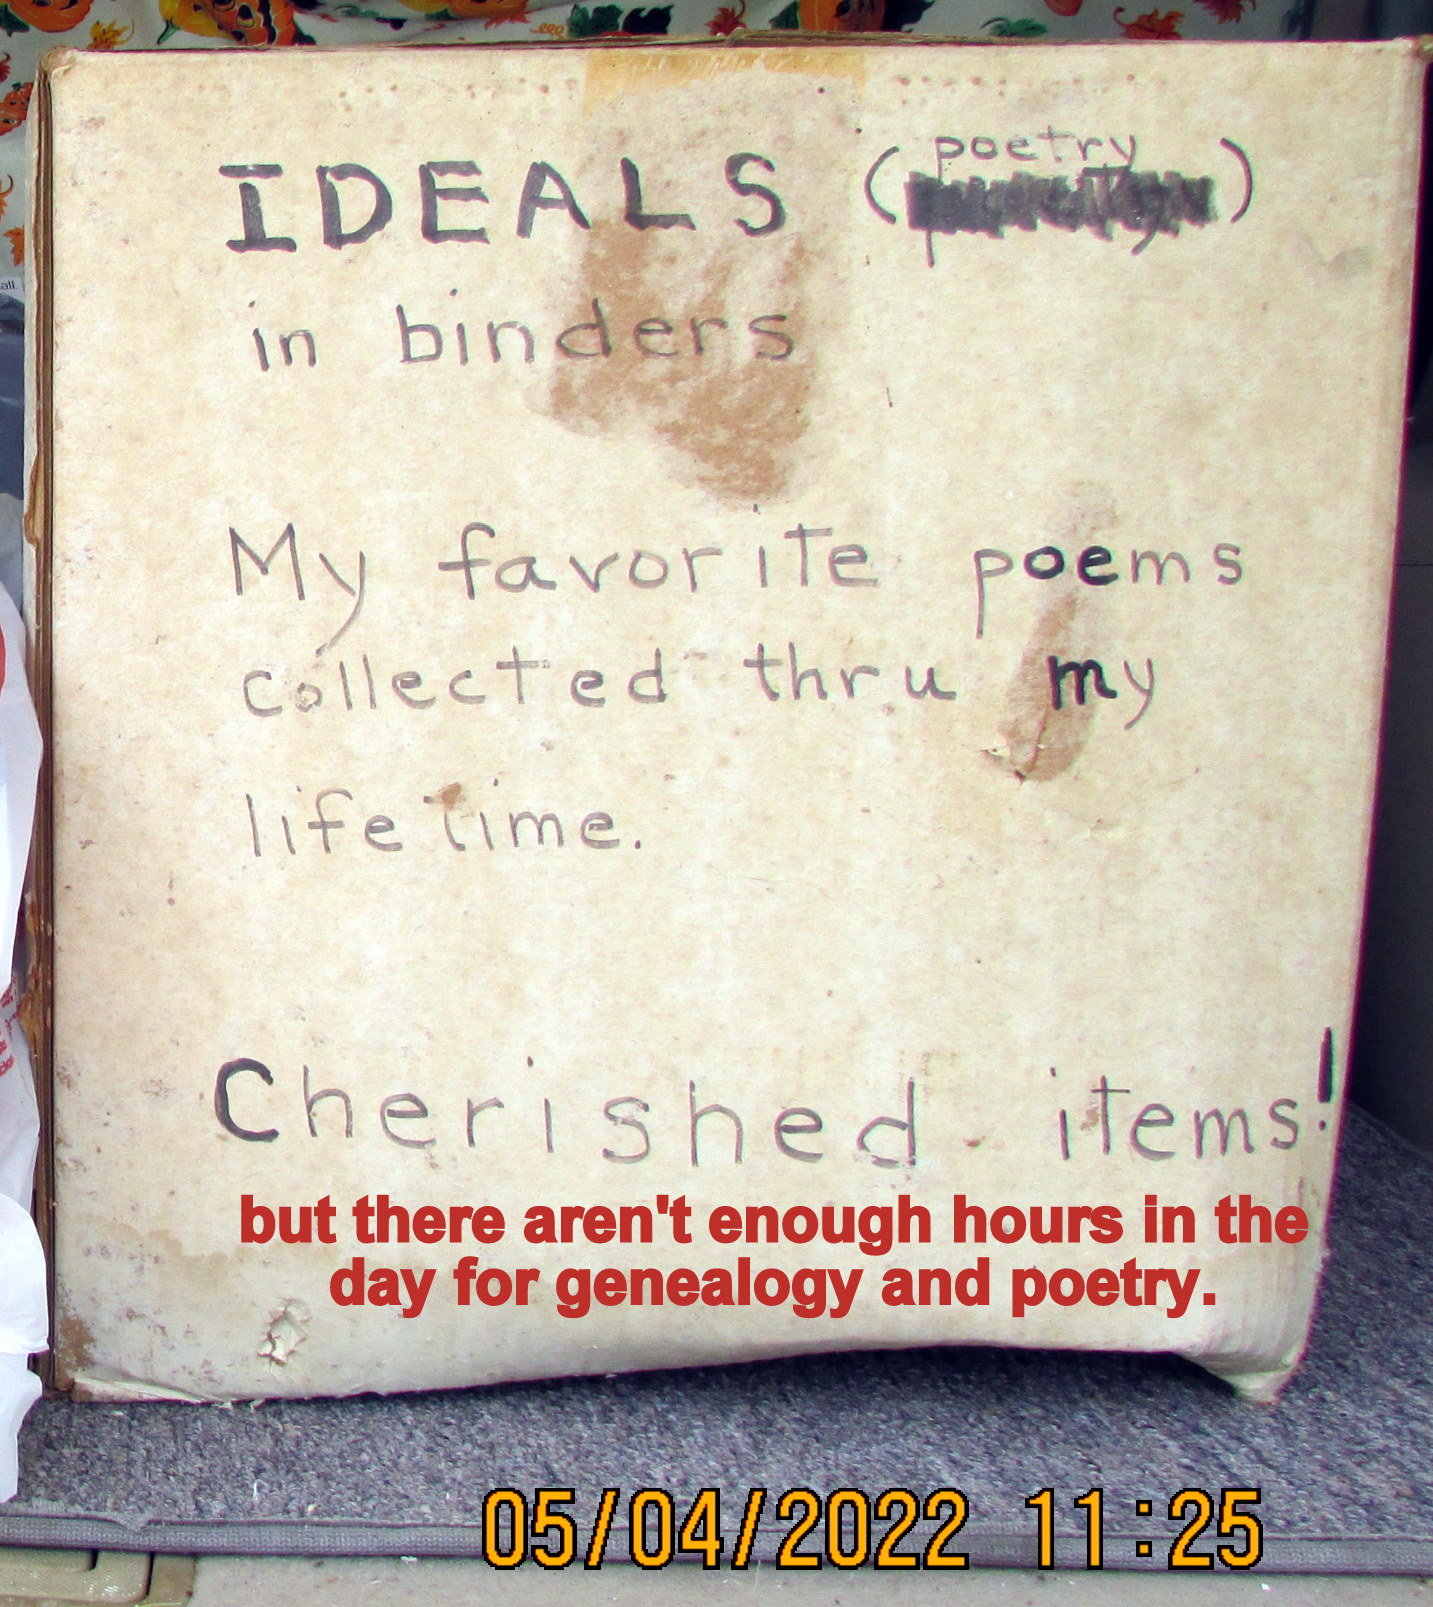 IDEALS (poetry)
in binders
My favorite poems
collected thru my
lifetime.
Cherished items!
but there aren't enough hours in the
day for genealogy and poetry.
05/04/2022 11:25